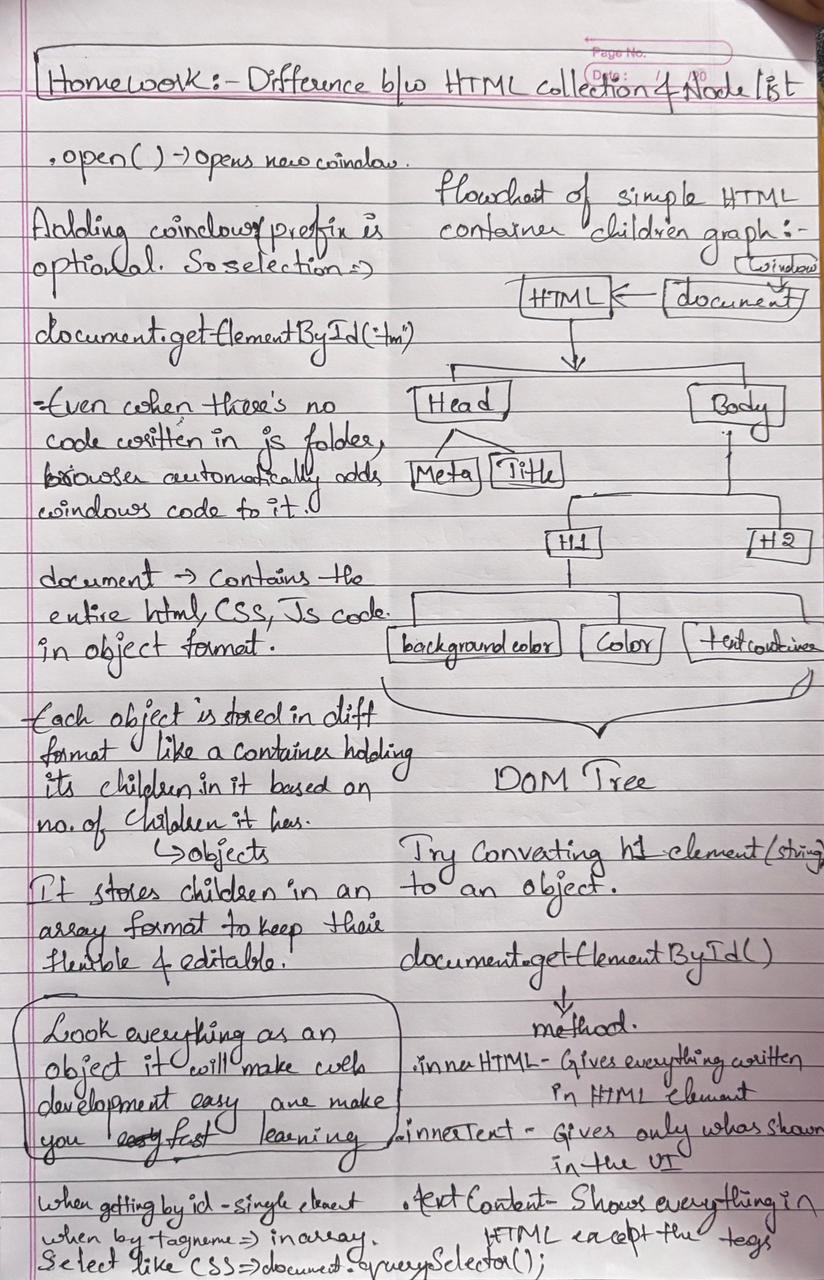 Page No.
Date: / /20
Homework:- Difference b/w HTML collection & Node list
.open() → opens new window.
Adding window prefix is
optional. So selection ⇒
document.getElementById("tm")
=Even when there's no
code written in js folder,
browser automatically adds
windows code to it.
document → contains the
entire html, CSS, Js code.
in object format.
Each object is stored in diff
format like a container holding
its children in it based on
no. of children it has.
↳ objects
It stores children in an
array format to keep their
flexible & editable.
Look everything as an
object it will make web
development easy ane make
you fast learning
when getting by id - single element
when by tagname ⇒ in array.
Select like CSS ⇒ document.querySelector();
flowchart of simple HTML
container children graph:-
window
HTML ← document
Head Body
Meta Title
H1 H2
background color Color
DOM Tree
Try Converting h1 element (string)
to an object.
document.getElementById()
↓
method.
.innerHTML- Gives everything written
in HTML element
.innerText - Gives only whas shown
in the UI
.textContent- Shows everything in
HTML except the tegs